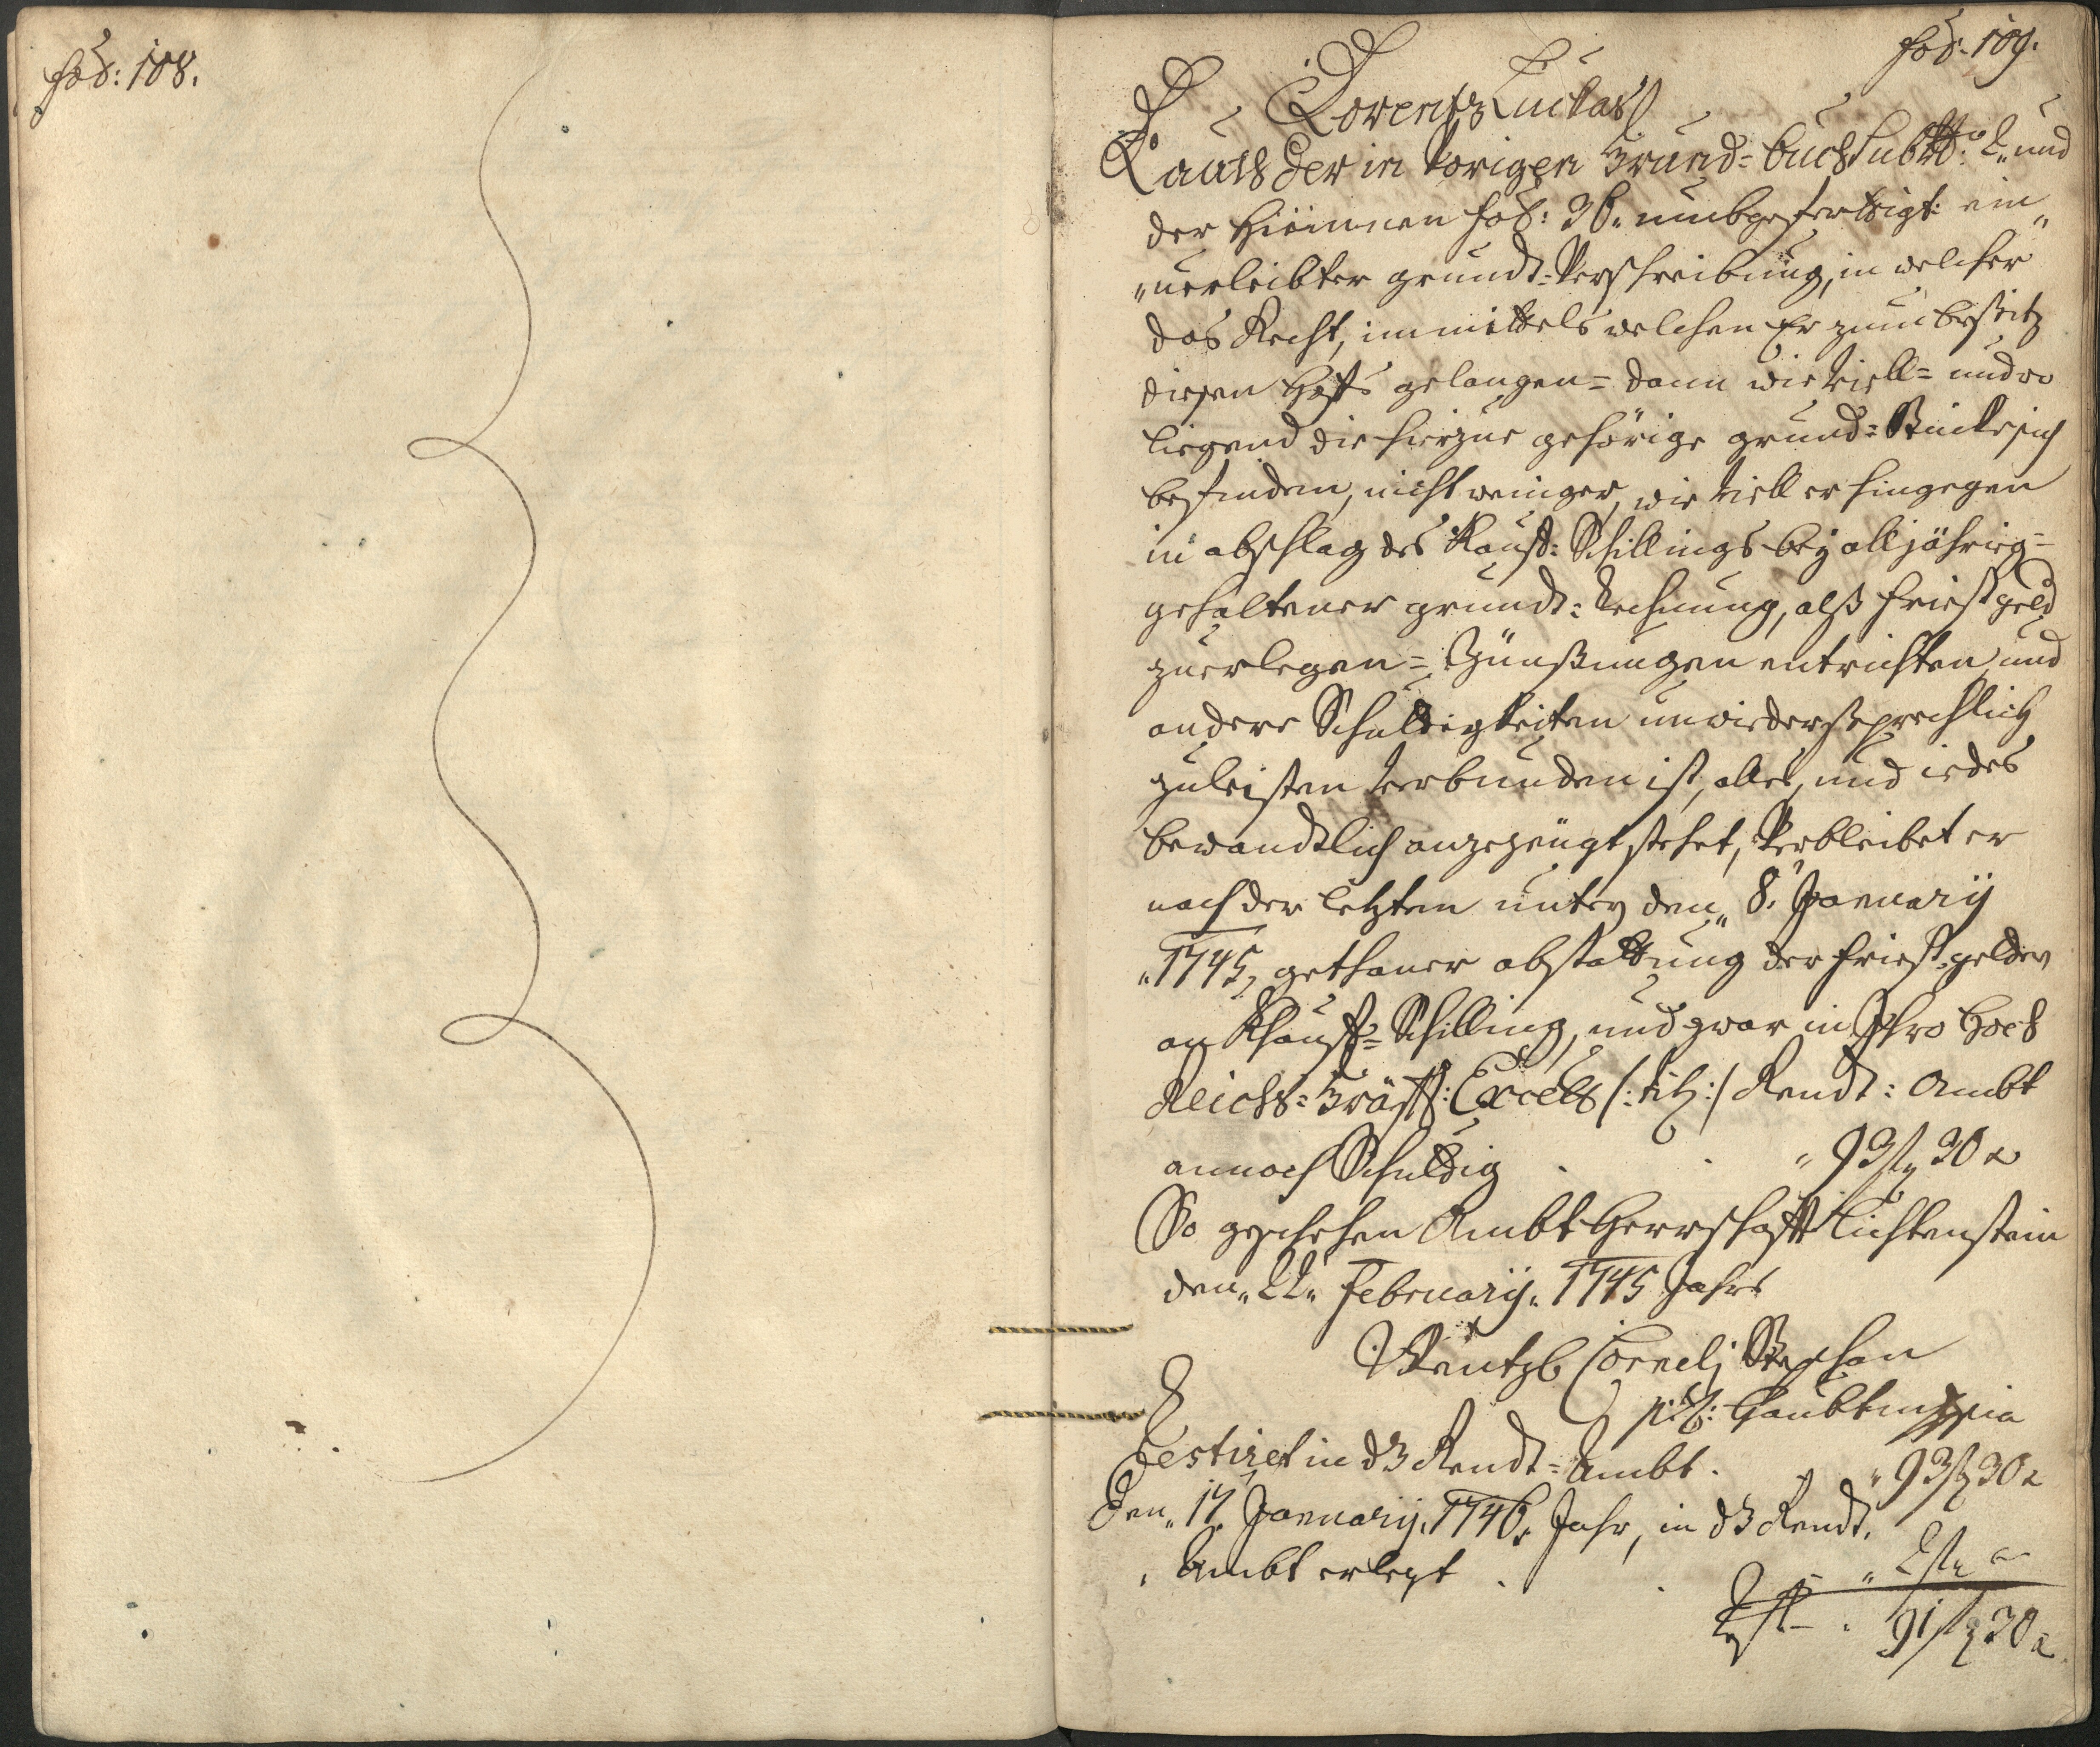 fol: 108.
fol: 109.
Lorentz Luckas
Lauth der in Vorigen Grund-buch sub N°: 2. und
der hiemmen fol: 36. umbgefertigt ein
verleibter grundt-Verschreibung, in welcher
das Recht, immittels welchen Er zum besitz
diesen Hoffs gelangen- dann wie Viell- und wo
liegend die hierzue gehörige grund-Stücke sich
befinden, nicht weniger, wie Viell er hingegen
in abschlag des Kauff-Schillings bey alljährig-
gehaltener grundt-Rechnung, alß Fristgeld
zuerlegen- Zünßungen entrichten, und
andere Schuldigkeiten unwiedersprechlich
zuleisten Verbunden ist, alles, und iedes
bewandtlich angezeügt stehet, Verbleibet er
nach der letzten unter den 8. January
1745, gethaner abstattung der Frist-gelder
an Khauff-Schilling, und zwar in Ihro Hoch
Reichs-Gräffl: Excell /:tit:/ Rendt: Ambt
annoch Schuldig . . 93 fl 30 x
So geschehen Ambt Herrschafft Lichtenstein
den 22. February. 1745 Jahrs
Wentzl Cornelj Stephan
p: t: Haubtman
Restiret in dß Rendt-Ambt. 93 fl 30 x
Den 17. January. 1746. Jahr, in dß Rendt.
Ambt erlegt . . 2 fl
Rest . 91 fl 30 x